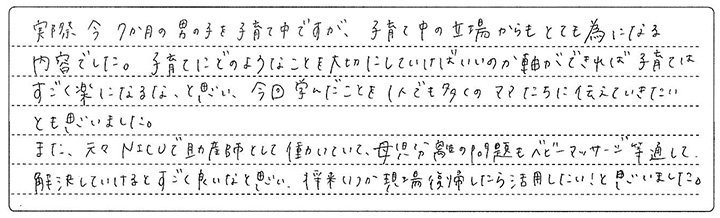 実際、今 7か月の男の子を子育て中ですが、子育て中の立場からもとても為になる
内容でした。子育てにどのようなことを大切にしていけばいいのか軸ができれば子育ては
すごく楽になるな、と思い、今回学んだことを1人でも多くのママたちに伝えていきたい
とも思いました。
また、元々NICUで助産師として働いていて、母児分離の問題もベビーマッサージ等通して
解決していけるとすごく良いなと思い、将来いつか現場復帰したら活用したい!と思いました。